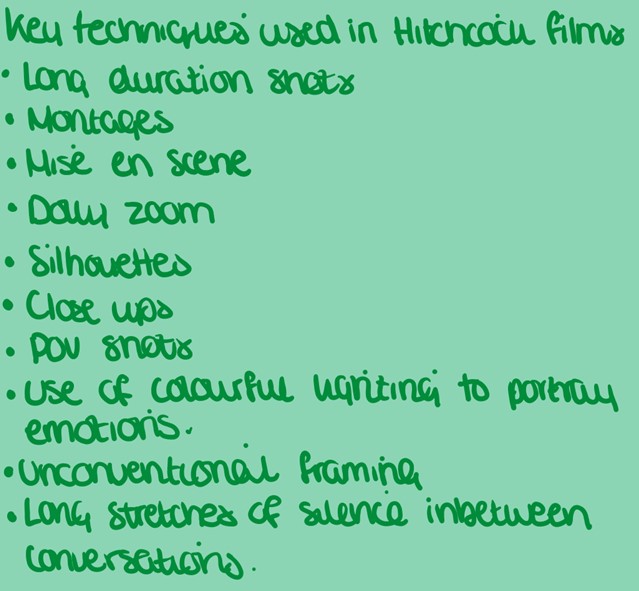 Key techniques used in Hitchcock films
• Long duration shots
• Montages
• Mise en scene
• Dolly zoom
• Silhouettes
• Close ups
• POV shots
• Use of colourful lighting to portray
emotions.
• Unconventional framing
• Long stretches of silence inbetween
conversations.